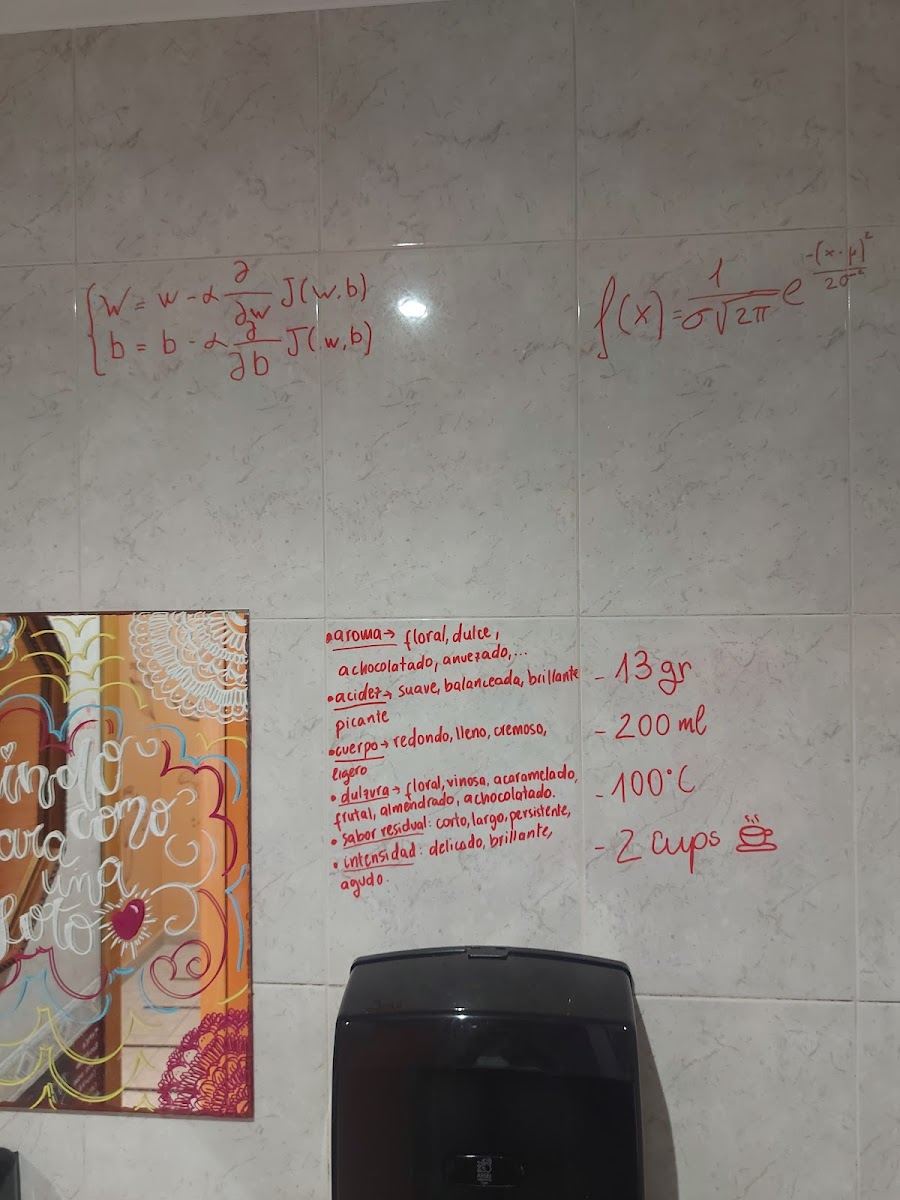 W = w - α ∂/∂w J(w,b)
b = b - α ∂/∂b J(w,b)
f(x) = 1/σ√2π e^-(x-μ)²/2σ²
• aroma → floral, dulce,
achocolatado, anuezado,...
• acidez → suave, balanceada, brillante
picante
• cuerpo → redondo, lleno, cremoso,
ligero
• dulzura → floral, vinosa, acaramelado,
frutal, almendrado, achocolatado.
• sabor residual: corto, largo, persistente,
• intensidad: delicado, brillante,
agudo.
- 13gr
- 200 ml
- 100°C
- 2 cups
como
una